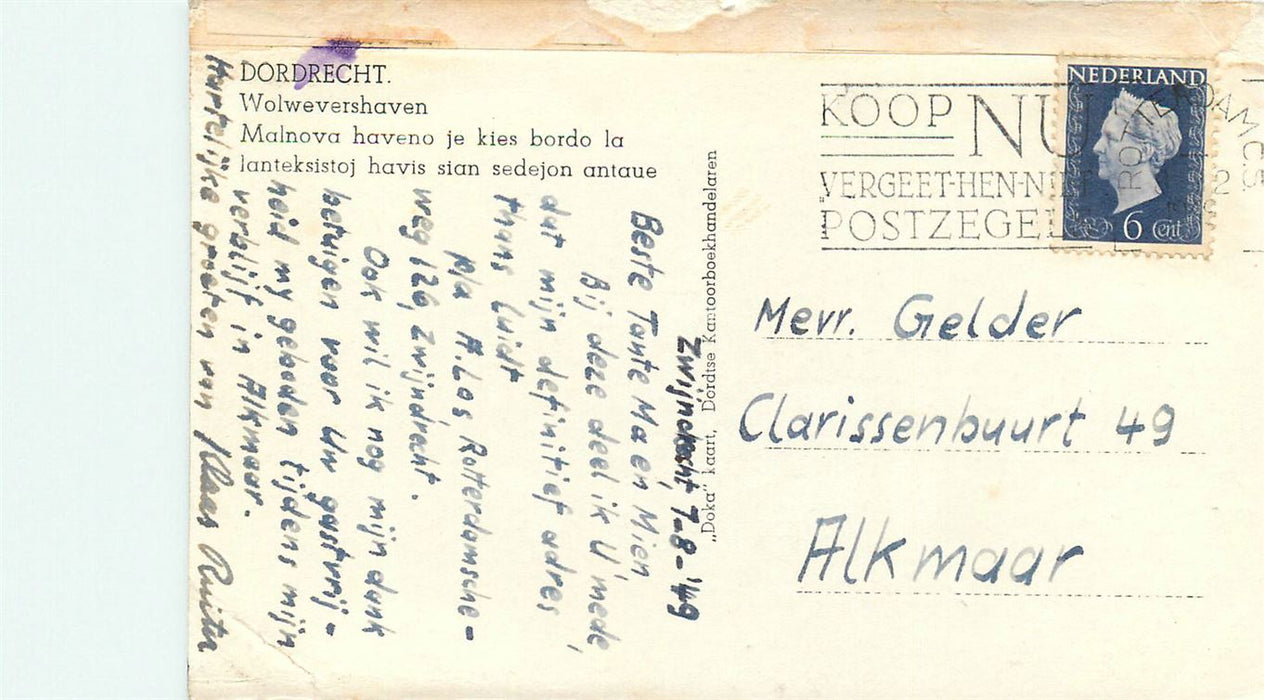 DORDRECHT.
Wolwevershaven
Malnova haveno je kies bordo la
lanteksistoj havis sian sedejon antaue
"Doka" kaart, Dordtse Kantoorboekhandelaren
KOOP NU
VERGEET-HEN-NIET
POSTZEGEL
NEDERLAND
6 cent
ROTTERDAM CS
Zwijndrecht, 7-8-'49
Beste Tante Ma en Mien
Bij deze deel ik U mede,
dat mijn definitief adres
thans luidt
p/a A. Los Rotterdamsche-
weg 126, Zwijndrecht.
Ook wil ik nog mijn dank
betuigen voor Uw gastvrij-
heid mij geboden tijdens mijn
verblijf in Alkmaar.
Hartelijke groeten van Klaas Ruiter
Mevr. Gelder
Clarissenbuurt 49
Alkmaar